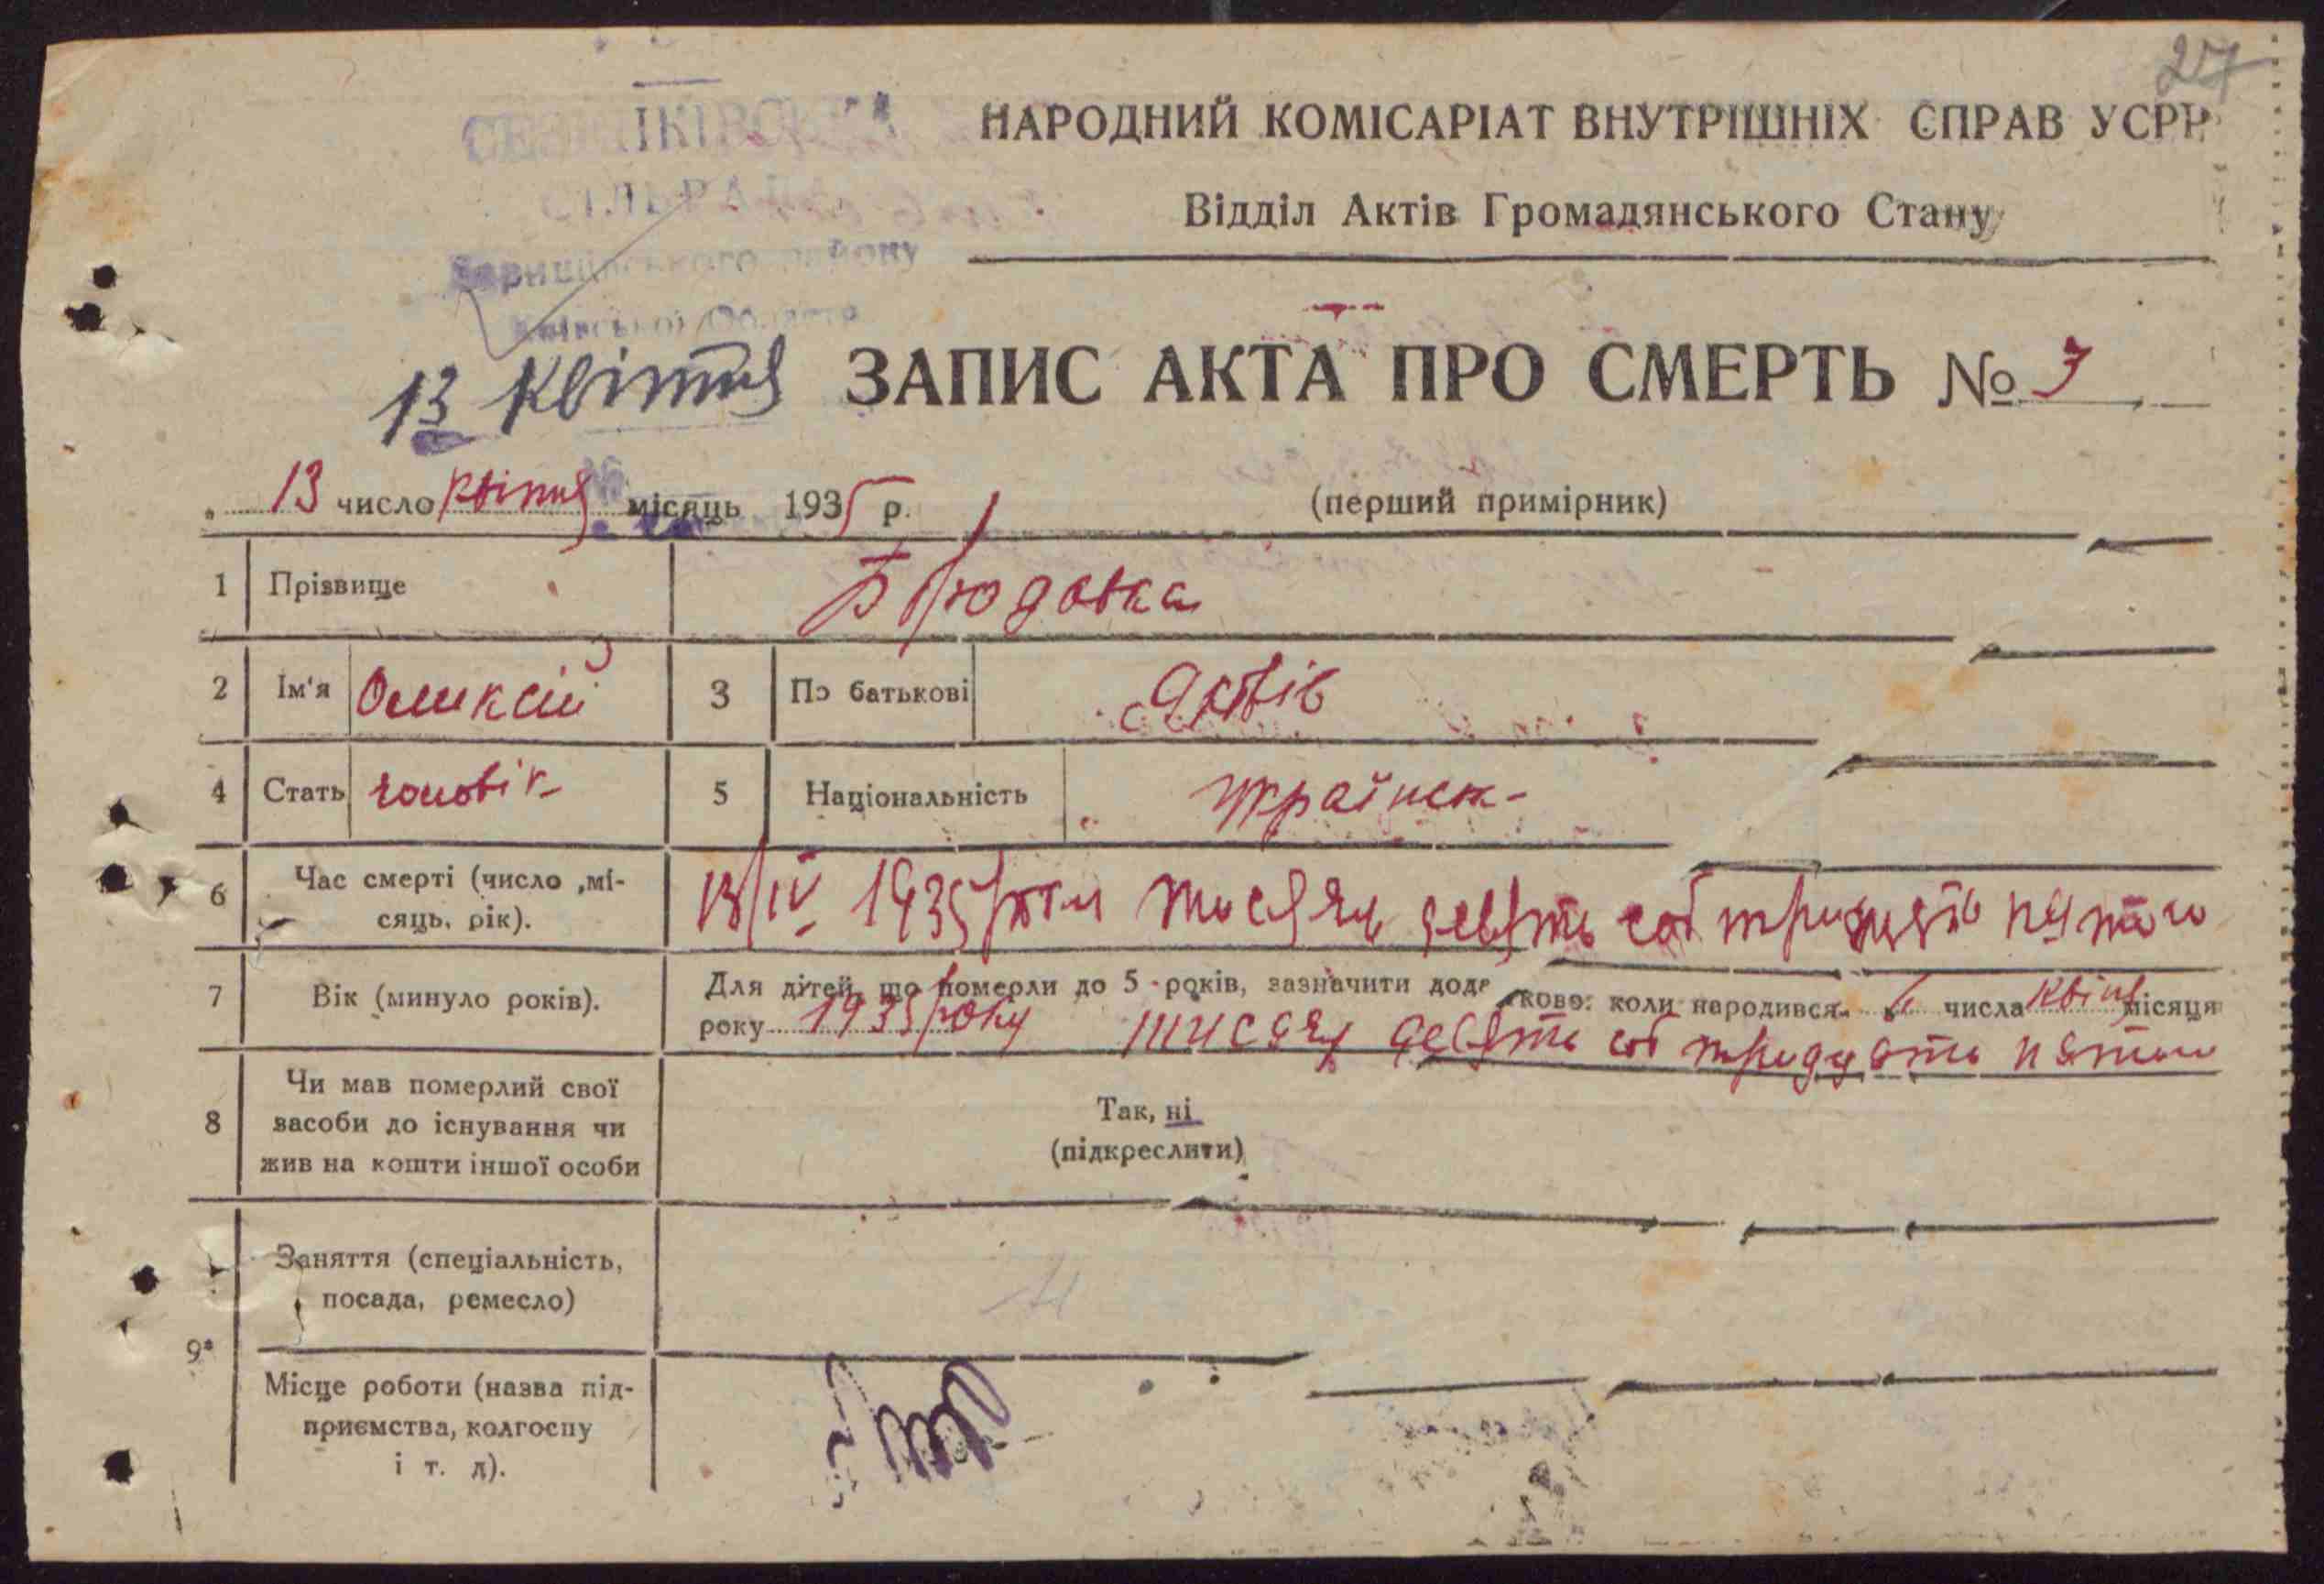 27
СІЛЬРАДА
Баришівського району
Київської Области
НАРОДНИЙ КОМІСАРІАТ ВНУТРІШНІХ СПРАВ УСРР
Відділ Актів Громадянського Стану
13 квітня ЗАПИС АКТА ПРО СМЕРТЬ №
13 число квітня місяць 1935 р. (перший примірник)
1 Прізвище
2 Ім'я Олексій 3 По батькові Яковів
4 Стать чоловік 5 Національність україненк-
6 Час смерті (число, місяць, рік). 13/IV 1935 тисяч девять сот тридцять пятого
7 Вік (минуло років). Для дітей, що померли до 5 років, зазначити додатково: коли народився 6 числа квітня місяця
року 1935 року тисяч девять сот тридцять пятого
8 Чи мав померлий свої
засоби до існування чи
жив на кошти іншої особи
Так, ні
(підкреслити)
9*
Заняття (спеціальність,
посада, ремесло)
Місце роботи (назва під-
приємства, колгоспу
і т. д).